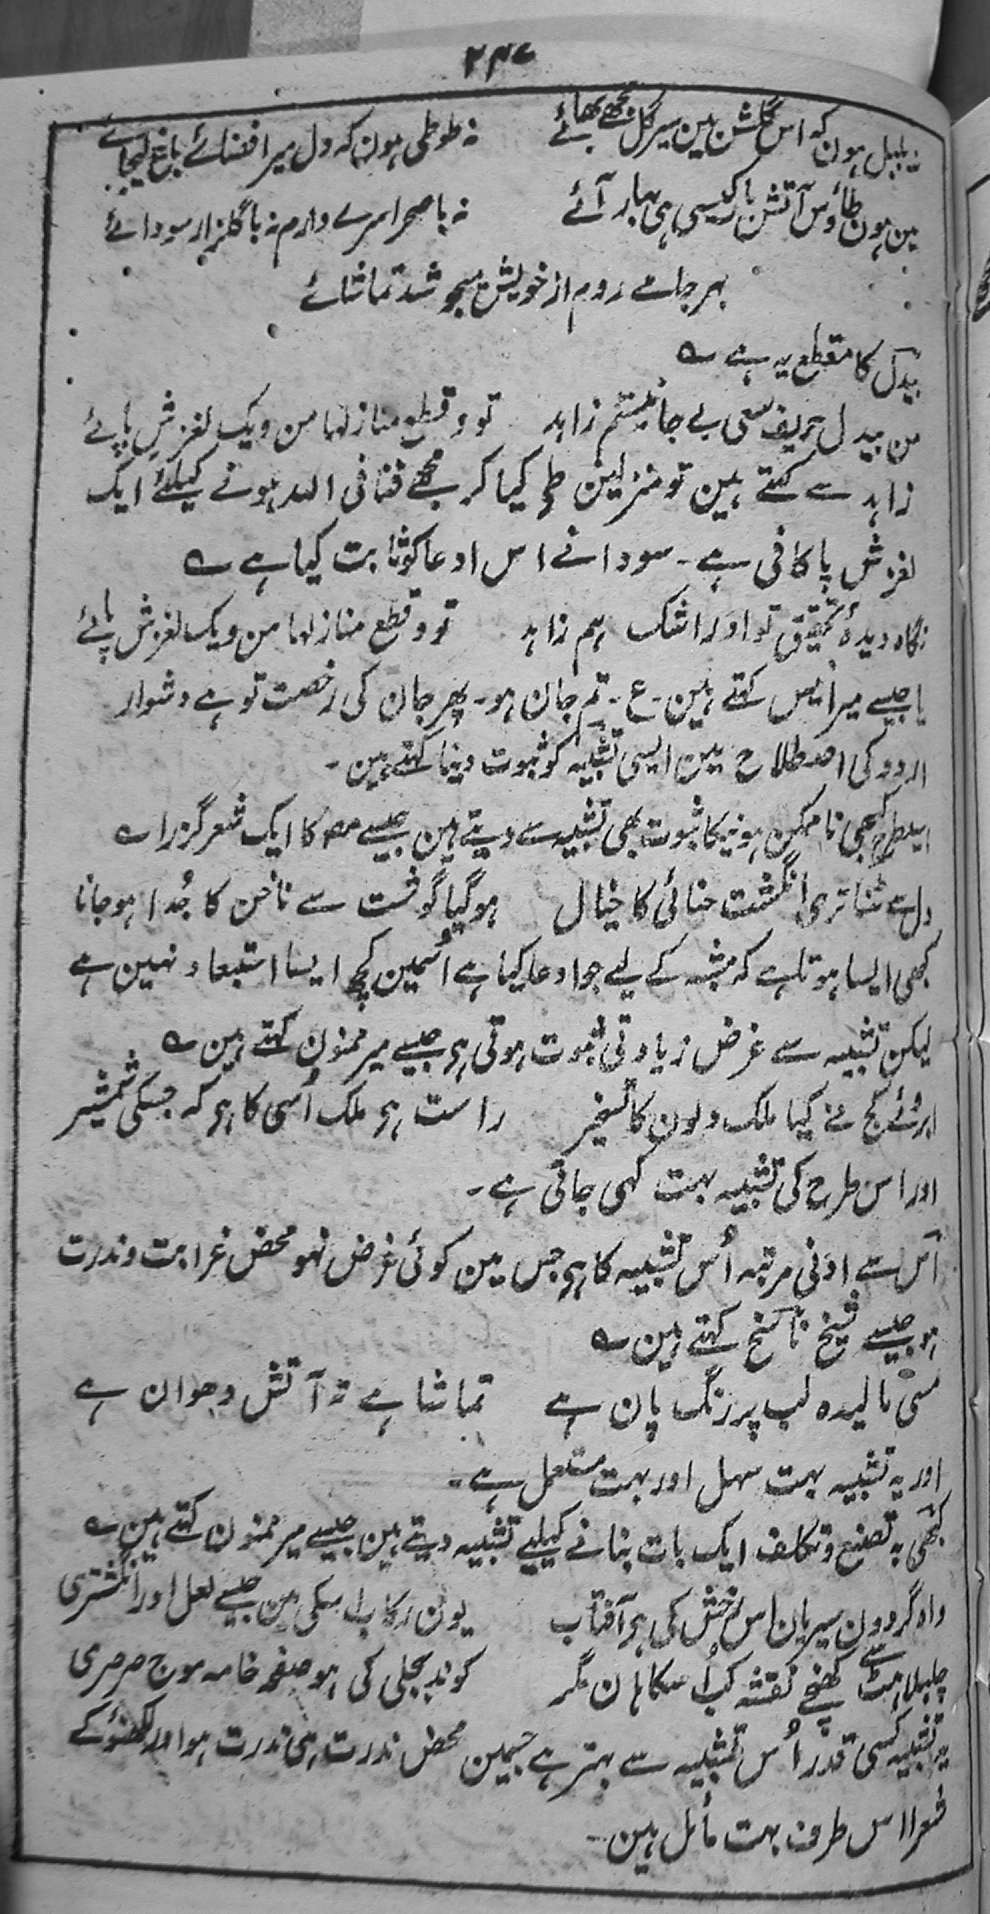 ۲۴۷
نہ بلبل ہون کہ اس گلشن مین سیر گل مجھے بھائے نہ طوطی ہون کہ دل میرا فضائے باغ لیجائے
مین ہون طاؤس آتش باز کیسی ہی بہار آئے نہ با صحرا سرے دارم نہ با گلزار سودائے
بہر جا مے روم از خویش میجوشد تماشائے
بیدل کا مقطع یہ ہے ؎
من بیدل حریف سعی بے جا نیستم زاہد تو و قطع منازلہا من و یک لغزش پائے
زاہد سے کہتے ہین تو منزلین طے کیا کر مجھے فنا فی اللہ ہونے کیلئے ایک
لغزش پا کافی ہے۔ سودا نے اس ادعا کو ثابت کیا ہے ؎
نگاہ دیدۂ تحقیق تو او را شک ہم زاہد تو و قطع منازلہا من و یک لغزش پائے
یا جیسے میر انیس کہتے ہین۔ ع۔ تم جان ہو۔ پھر جان کی رخصت تو ہے دشوار
اردو کی اصطلاح مین ایسی تشبیہ کو ثبوت دینا کہتے ہین۔
اسیطرح کبھی ناممکن ہونیکا ثبوت بھی تشبیہ سے دیتے ہین جیسے مصؔ کا ایک شعر گزرا ؎
دل سے مٹنا تری انگشت حنائی کا خیال ہو گیا گوشت سے ناخن کا جُدا ہو جانا
کبھی ایسا ہوتا ہے کہ مشبہ کے لیے جو ادعا کیا ہے اُسمین کچھ ایسا استبعاد نہین ہے
لیکن تشبیہ سے غرض زیادتی ثبوت ہوتی ہر جیسے میر ممنون کہتے ہین ؎
ابروئے کج نے کیا ملک دلون کا تسخیر راست ہر ملک اُسی کا ہر کہ جسکی شمشیر
اور اس طرح کی تشبیہ بہت کہی جاتی ہے۔
اُس سے ادنی مرتبہ اُس تشبیہ کا ہر جس مین کوئی غرض نہو محض غرابت و ندرت
ہو جیسے شیخ ناسخ کہتے ہین ؎
مسّی مالیدہ لب پر رنگ پان ہے تماشا ہے تہ آتش دھوان ہے
اور یہ تشبیہ بہت سہل اور بہت مستعمل ہے۔
کبھی بہ تصنع و تکلف ایک بات بنانے کیلیے تشبیہ دیتے ہین جیسے میر ممنون کہتے ہین ؎
واہ گردون سیریان اس رخش کی ہر آفتاب یون رکاب اسکی مین جیسے لعل اور انگشتری
چلبلاہٹ سے کھنچے نقشہ کب اُسکا ہان مگر کوند بجلی کی ہو صفحہ خامہ موج صرصری
یہ تشبیہ کسی قدر اُس تشبیہ سے بہتر ہے جسمین محض ندرت ہی ندرت ہو اور لکھنؤ کے
شعرا اس طرف بہت مائل ہین۔